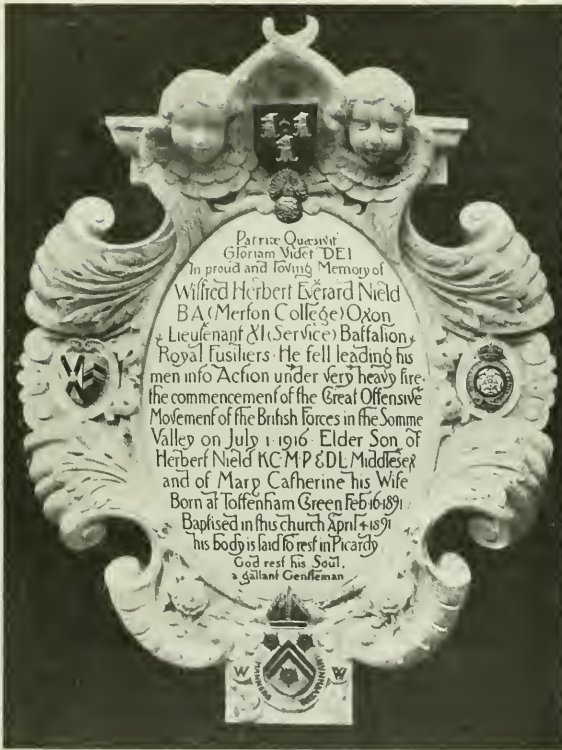 Patriæ Quæsivit
Gloriam Videt DEI
In proud and loving Memory of
Wilfred Herbert Everard Nield
BA (Merton College) Oxon
Lieutenant XI (Service) Battalion
Royal Fusiliers · He fell leading his
men into Action under very heavy fire·
the commencement of the Great Offensive
Movement of the British Forces in the Somme
Valley on July 1·1916· Elder Son of
Herbert Nield KC·M·P & DL Middlesex
and of Mary Catherine his Wife
Born at Tottenham Green Feb·16·1891
Baptised in this church April 4·1891
his body is laid to rest in Picardy
God rest his Soul,
a gallant Gentleman
W W